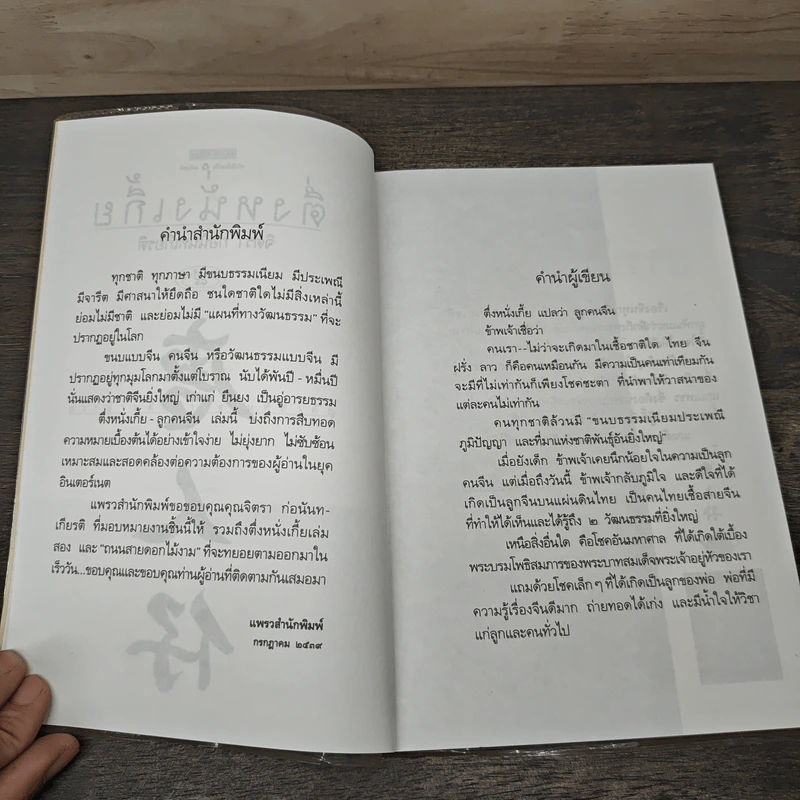 คำนำสำนักพิมพ์
ทุกชาติ ทุกภาษา มีขนบธรรมเนียม มีประเพณี
มีจารีต มีศาสนาให้ยึดถือ ชนใดชาติใดไม่มีสิ่งเหล่านี้
ย่อมไม่มีชาติ และย่อมไม่มี "แผนที่ทางวัฒนธรรม" ที่จะ
ปรากฏอยู่ในโลก
ขนบแบบจีน คนจีน หรือวัฒนธรรมแบบจีน มี
ปรากฏอยู่ทุกมุมโลกมาตั้งแต่โบราณ นับได้พันปี - หมื่นปี
นั่นแสดงว่าชาติจีนยิ่งใหญ่ เก่าแก่ ยืนยง เป็นอู่อารยธรรม
ตึ่งหนั่งเกี้ย - ลูกคนจีน เล่มนี้ บ่งถึงการสืบทอด
ความหมายเบื้องต้นได้อย่างเข้าใจง่าย ไม่ยุ่งยาก ไม่ซับซ้อน
เหมาะสมและสอดคล้องต่อความต้องการของผู้อ่านในยุค
อินเตอร์เนต
แพรวสำนักพิมพ์ขอขอบคุณคุณจิตรา ก่อนันท-
เกียรติ ที่มอบหมายงานชิ้นนี้ให้ รวมถึงตึ่งหนั่งเกี้ยเล่ม
สอง และ "ถนนสายดอกไม้งาม" ที่จะทยอยตามออกมาใน
เร็ววัน...ขอบคุณและขอบคุณท่านผู้อ่านที่ติดตามกันเสมอมา
แพรวสำนักพิมพ์
กรกฎาคม ๒๕๓๙
คำนำผู้เขียน
ตึ่งหนั่งเกี้ย แปลว่า ลูกคนจีน
ข้าพเจ้าเชื่อว่า
คนเรา--ไม่ว่าจะเกิดมาในเชื้อชาติใด ไทย จีน
ฝรั่ง ลาว ก็คือคนเหมือนกัน มีความเป็นคนเท่าเทียมกัน
จะมีที่ไม่เท่ากันก็เพียงโชคชะตา ที่นำพาให้วาสนาของ
แต่ละคนไม่เท่ากัน
คนทุกชาติล้วนมี "ขนบธรรมเนียมประเพณี
ภูมิปัญญา และที่มาแห่งชาติพันธุ์อันยิ่งใหญ่"
เมื่อยังเด็ก ข้าพเจ้าเคยนึกน้อยใจในความเป็นลูก
คนจีน แต่เมื่อถึงวันนี้ ข้าพเจ้ากลับภูมิใจ และดีใจที่ได้
เกิดเป็นลูกจีนบนแผ่นดินไทย เป็นคนไทยเชื้อสายจีน
ที่ทำให้ได้เห็นและได้รู้ถึง ๒ วัฒนธรรมที่ยิ่งใหญ่
เหนือสิ่งอื่นใด คือโชคอันมหาศาล ที่ได้เกิดใต้เบื้อง
พระบรมโพธิสมภารของพระบาทสมเด็จพระเจ้าอยู่หัวของเรา
แถมด้วยโชคเล็กๆ ที่ได้เกิดเป็นลูกของพ่อ พ่อที่มี
ความรู้เรื่องจีนดีมาก ถ่ายทอดได้เก่ง และมีน้ำใจให้วิชา
แก่ลูกและคนทั่วไป